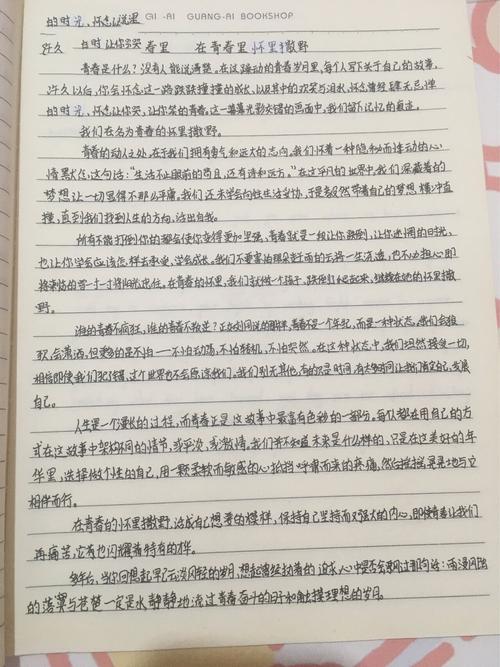 的时光，怀念以说里
GI -AI GUANG-AI BOOKSHOP
许久 的时 让你哭 春里 在青春里怀里撒野
青春是什么？没有人能说清楚。在这躁动的青春岁月里，每个人写下关于自己的故事，
许久以后，你会怀念这一路跌跌撞撞的成长，以及其中的欢笑与泪水，怀念曾经肆无忌惮
的时光，怀念让你哭，让你笑的青春。这一幕幕光影交错的画面中，我们留下记忆的痕迹。
我们在名为青春的怀里撒野。
青春的动人之处，在于我们拥有勇气和远大的志向。我们怀着一种隐秘而悸动的心
情默念这句话："生活不止眼前的苟且，还有诗和远方。"在这平凡的世界中，我们深藏着的
梦想让一切显得不那么平庸。我们还未学会向性生活妥协，于是毅然带着自己的梦想横冲直
撞，直到我们找到人生的方向，活出自我。
所有不能打倒你的都会使你变得更加坚强。青春就是一段让你跌倒，让你迷惘的时光，
也让你学会应该怎样去承受，学会成长。我们不要害怕那朵积雨的云将一生浇透，也不必担心即
将来临的 一寸一寸将阳光 。在青春的怀里，我们就像个孩子，跌倒了爬起来，继续在他的怀里撒
野。
谁的青春不疯狂，谁的青春不叛逆？正如刘同说的那样，青春不是一个年纪，而是一种状态。我们会狂
欢，会潇洒，但更多的是不怕——不怕动荡，不怕转机，不怕突然。在这种状态中，我们坦然接受一切，
相信即使我们犯了错，这个世界也不会原谅我们。我们别无其他，有的只是时间，有大多时间让我们肯定自己，发展
自己。
人生是一个漫长的过程，而青春正是这故事中最富有色彩的一部分。每个人都在用自己的方
式在这故事中架构不同的情节，或平淡，或激情。我们并不知道未来是什么样的，只是在这美好的年
华里，选择做个性的自己，用一颗柔软而敏感的心抵挡呼啸而来的疼痛，然后摇摇晃晃地与它
相伴而行。
在青春的怀里撒野，活成自己想要的模样，保持自己坚持而又强大的内心，即使青春让我们
再痛苦，它有也闪耀着特有的光华。
多年后，当你回想起早已云淡风轻的岁月，想起曾经执着的追求，心中是否会飘过那句话：雨漫风强
的落寞与苍茫一定是水静静静地流过青春奋斗的日子和触摸理想的岁月。